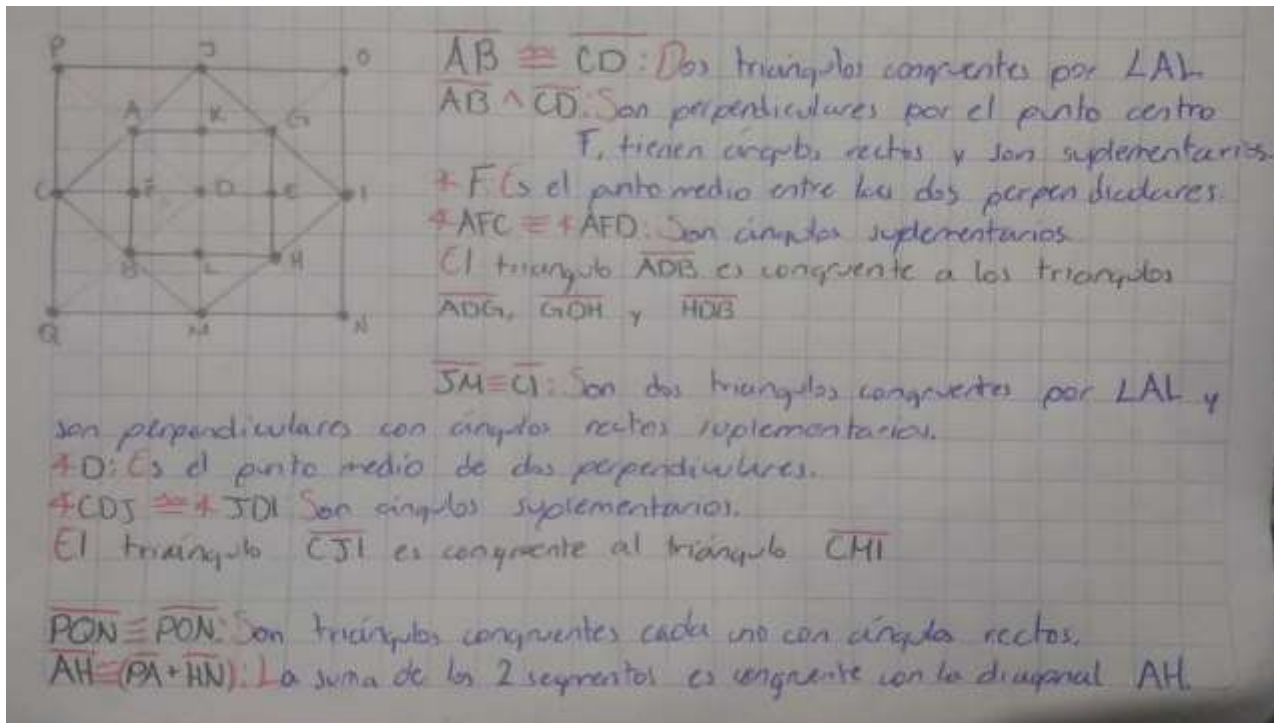 P J O
A K G
C F D E I
B L H
Q M N
AB ≅ CD: Dos triángulos congruentes por LAL
AB ^ CD: Son perpendiculares por el punto centro
F, tienen ángulos rectos y son suplementarios.
∢ F: Es el punto medio entre las dos perpendiculares.
∢ AFC ≅ ∢ AFD: Son ángulos suplementarios
El triangulo ADB es congruente a los triangulos
ADG, GDH y HDB
JM ≅ CI: Son dos triangulos congruentes por LAL y
son perpendiculares con ángulos rectos suplementarios.
∢ D: Es el punto medio de dos perpendiculares.
∢ CDJ ≅ ∢ JDI Son ángulos suplementarios.
El triángulo CJI es congruente al triángulo CMI
PQN ≅ PON: Son triángulos congruentes cada uno con ángulos rectos.
AH ≅ (PA + HN): La suma de los 2 segmentos es congruente con la diagonal AH.